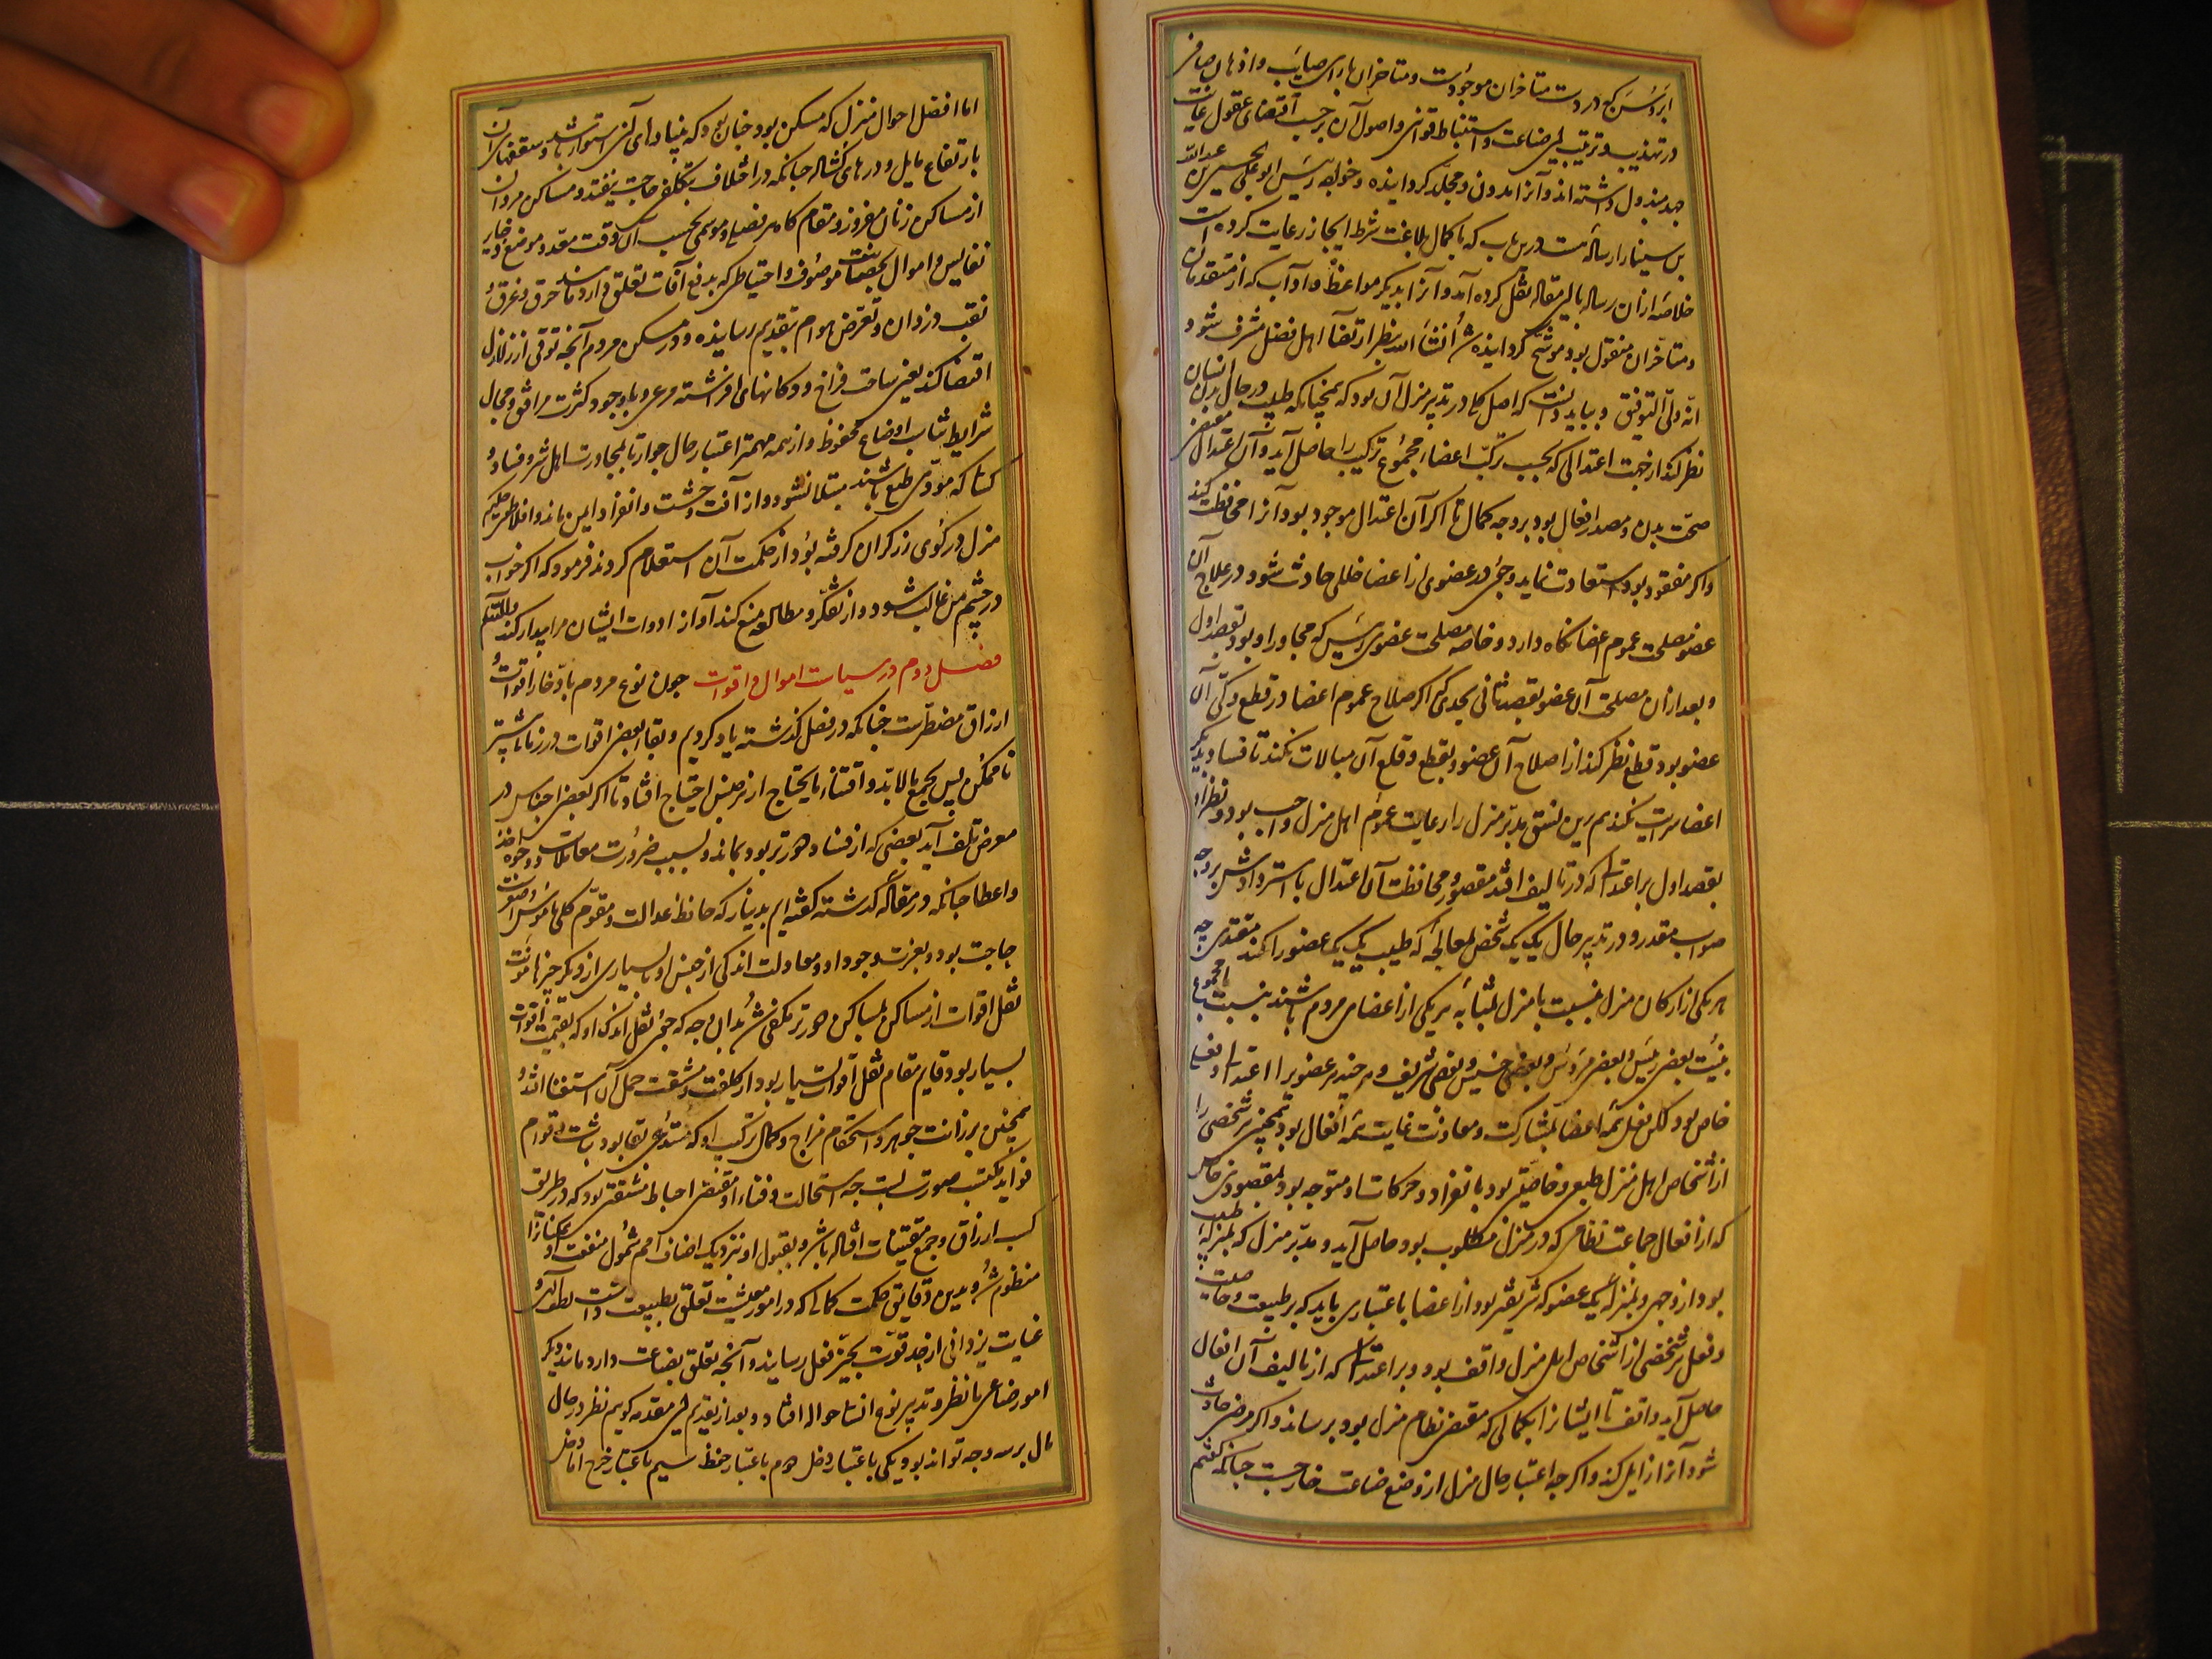 ابروسن که در دست متاخران موجودست و متاخران بارای صایب و اذهان صافی
در تهذیب و ترتیب این صناعت و استنباط قوانین و اصول آن بر حسب اقتضای عقول غایت
جهد مبذول داشته‌اند و آنرا مدون و مجلد کردانیده و خواجه رئیس ابو علی الحسین بن عبدالله
بن سینا را رساله‌ایست درین باب که با کمال بلاغت شرط ایجاز رعایت کرده است
خلاصه ازان رساله با این مقاله نقل کرده آمد و آنرا بدیکر مواعظ و آداب که از متقدمان
و متاخران منقول بود موشح کردانیده شد انشاء الله بنظر ارتضاء اهل فضل مشرف شود
انه ولی التوفیق و بباید دانست که اصل کلی در تدبیر منزل آن بود که همچنانکه طبیب در حال بدن انسان
نظر کند از جهت اعتدالی که بحسب ترکب اعضاء مجموع ترکیب را حاصل آید و آن اعتدال مقتضی
صحت بدن و مصدر افعال بود بر وجه کمال تا اکر آن اعتدال موجود بود آنرا محافظت کند
و اکر مفقود بود استعادت نماید و چون در عضوی از اعضا خللی حادث شود در علاج آن
عضو مصلحت عموم اعضا نکاه دارد و خاصه مصلحت عضوی رئیس که مجاور او بود بقصد اول
و بعد ازان مصلحت آن عضو بقصد ثانی بحدی که اکر صلاح عموم اعضا در قطع و کی آن
عضو بود قطع نظر کند از اصلاح آن عضو و بقطع و قلع آن مبالات نکند تا فساد بدیکر
اعضا سرایت نکند هم برین نسق مدبر منزل را رعایت عموم اهل منزل واجب بود و نظر او
بقصد اول بر اعتدالی که در تالیف افتد مقصور و محافظت آن اعتدال با استرداد آن بر وجه
صواب مقدر و در تدبیر حال یک یک شخص بمعالجه که طبیب یک یک عضو را کند مقتدی چه
هر یکی از ارکان منزل بنسبت با منزل بمثابه هر یکی از اعضای مردم باشند بنسبت با مجموع
بنیت بعضی رئیس و بعضی مرؤس و بعضی خسیس و بعضی شریف و هر چند هر عضوی را اعتدالی و فعلی
خاص بود لکن فعل همه اعضا بمشارکت و معاونت غایت همه افعال بود همچنین هر شخصی را
از اشخاص اهل منزل طبعی و خاصیتی بود بانفراد و حرکات او متوجه بود بمقصودی خاص
که از افعال جماعت نظامی که در منزل مطلوب بود حاصل آید و مدبر منزل که بمنزله طبیب
بود از وجهی و بمنزله یک عضو که شریفتر بود از اعضا باعتباری باید که بر طبیعت و خاصیت
و فعل هر شخصی از اشخاص اهل منزل واقف بود و بر اعتدالی که از تالیف آن افعال
حاصل آید واقف تا ایشان را بکمالی که مقتضی نظام منزل بود برساند و اکر مرضی حادث
شود آنرا زایل کند و اکر چه اعتبار حال منزل از وضع صناعت خارجست چنانکه کفتیم
اما افضل احوال منزل که مسکن بود چنان بود که بنیادهای آن استوار باشد و سقفهای آن
بارتفاع مایل و درهای کشاده چنانکه در اختلاف بتکلف حاجت نیفتد و مساکن مردان
از مساکن زنان مفروز و مقام کاه هر فصلی و موسمی بحسب آن وقت معد و موضع ذخایر
نفایس و اموال بحصانت موصوف و احتیاطی که بدفع آفات تعلق دارد مانند حرق و غرق و
نقب دزدان و تعرض هوام بتقدیم رسانیده و در مسکن مردم آنچه توقی از زلازل
اقتضا کند یعنی ساحت فراخ و دکانهای افراشته مرعی و با وجود کثرت مرافق و محال
شرایط تناسب اوضاع محفوظ و از همه مهمتر اعتبار حال جوار تا بمجاورت اهل شر و فساد و
کسانی که موذی طبع باشند مبتلا نشود و از آفت وحشت و انفراد ایمن ماند و افلاطن حکیم
منزل در کوی زرکران کرفته بود از حکمت آن استعلام کردند فرمود که اکر خواب
در چشم من غالب شود و از تفکر و مطالعه منع کند آواز ادوات ایشان مرا بیدار کند والله اعلم
فصل دوم در سیاست اموال و اقوات چون نوع مردم بادخار اقوات و
ارزاق مضطرست چنانکه در فصل کذشته یاد کردیم و بقاء بعضی اقوات در زمانی بیشتر
ناممکن پس بجمع مالابد و اقتناء مایحتاج از هر جنس احتیاج افتاد تا اکر بعضی اجناس در
معرض تلف آید بعضی که از فساد دورتر بود بماند و بسبب ضرورت معاملات و وجوه اخذ
و اعطا چنانکه در مقاله کذشته کفته‌ایم بدینار که حافظ عدالت و مقوم کلی و ناموس اصغرست
حاجت بود و بعزت وجود او و معادلت اندکی از جنس او با بسیاری از دیکر چیزها مونت
نقل اقوات از مساکن بمساکن دورتر مکفی شد بدان وجه که چون نقل اندک او که بقیمت اقوات
بسیار بود قایم مقام نقل اقوات بسیار بود از کلفت و مشقت حمل آن استغنا افتد و
همچنین برزانت جوهر و استحکام مزاج و کمال ترکیب او که مستدعی بقا بود ثبات و قوام
فواید مکتسب صورت بست چه استحالت و فناء او مقتضی احباط مشقتی بود که در طریق
کسب ارزاق و جمع مقتنیات افتاده باشد و بقبول او نزدیک اصناف امم شمول منفعت او همکنانرا
منظوم شد و بدین دقایق حکمت کمالی که در امور معیشت تعلق بطبیعت داشت لطف الهی و
عنایت یزدانی از حد قوت بحیز فعل رسانید و آنچه تعلق بصناعت دارد مانند دیکر
امور صناعی با نظر و تدبیر نوع انسانی حواله افتاد و بعد از تقدیم این مقدمه کوییم نظر در حال
مال بر سه وجه تواند بود یکی باعتبار دخل دوم باعتبار حفظ سیم باعتبار خرج اما دخل